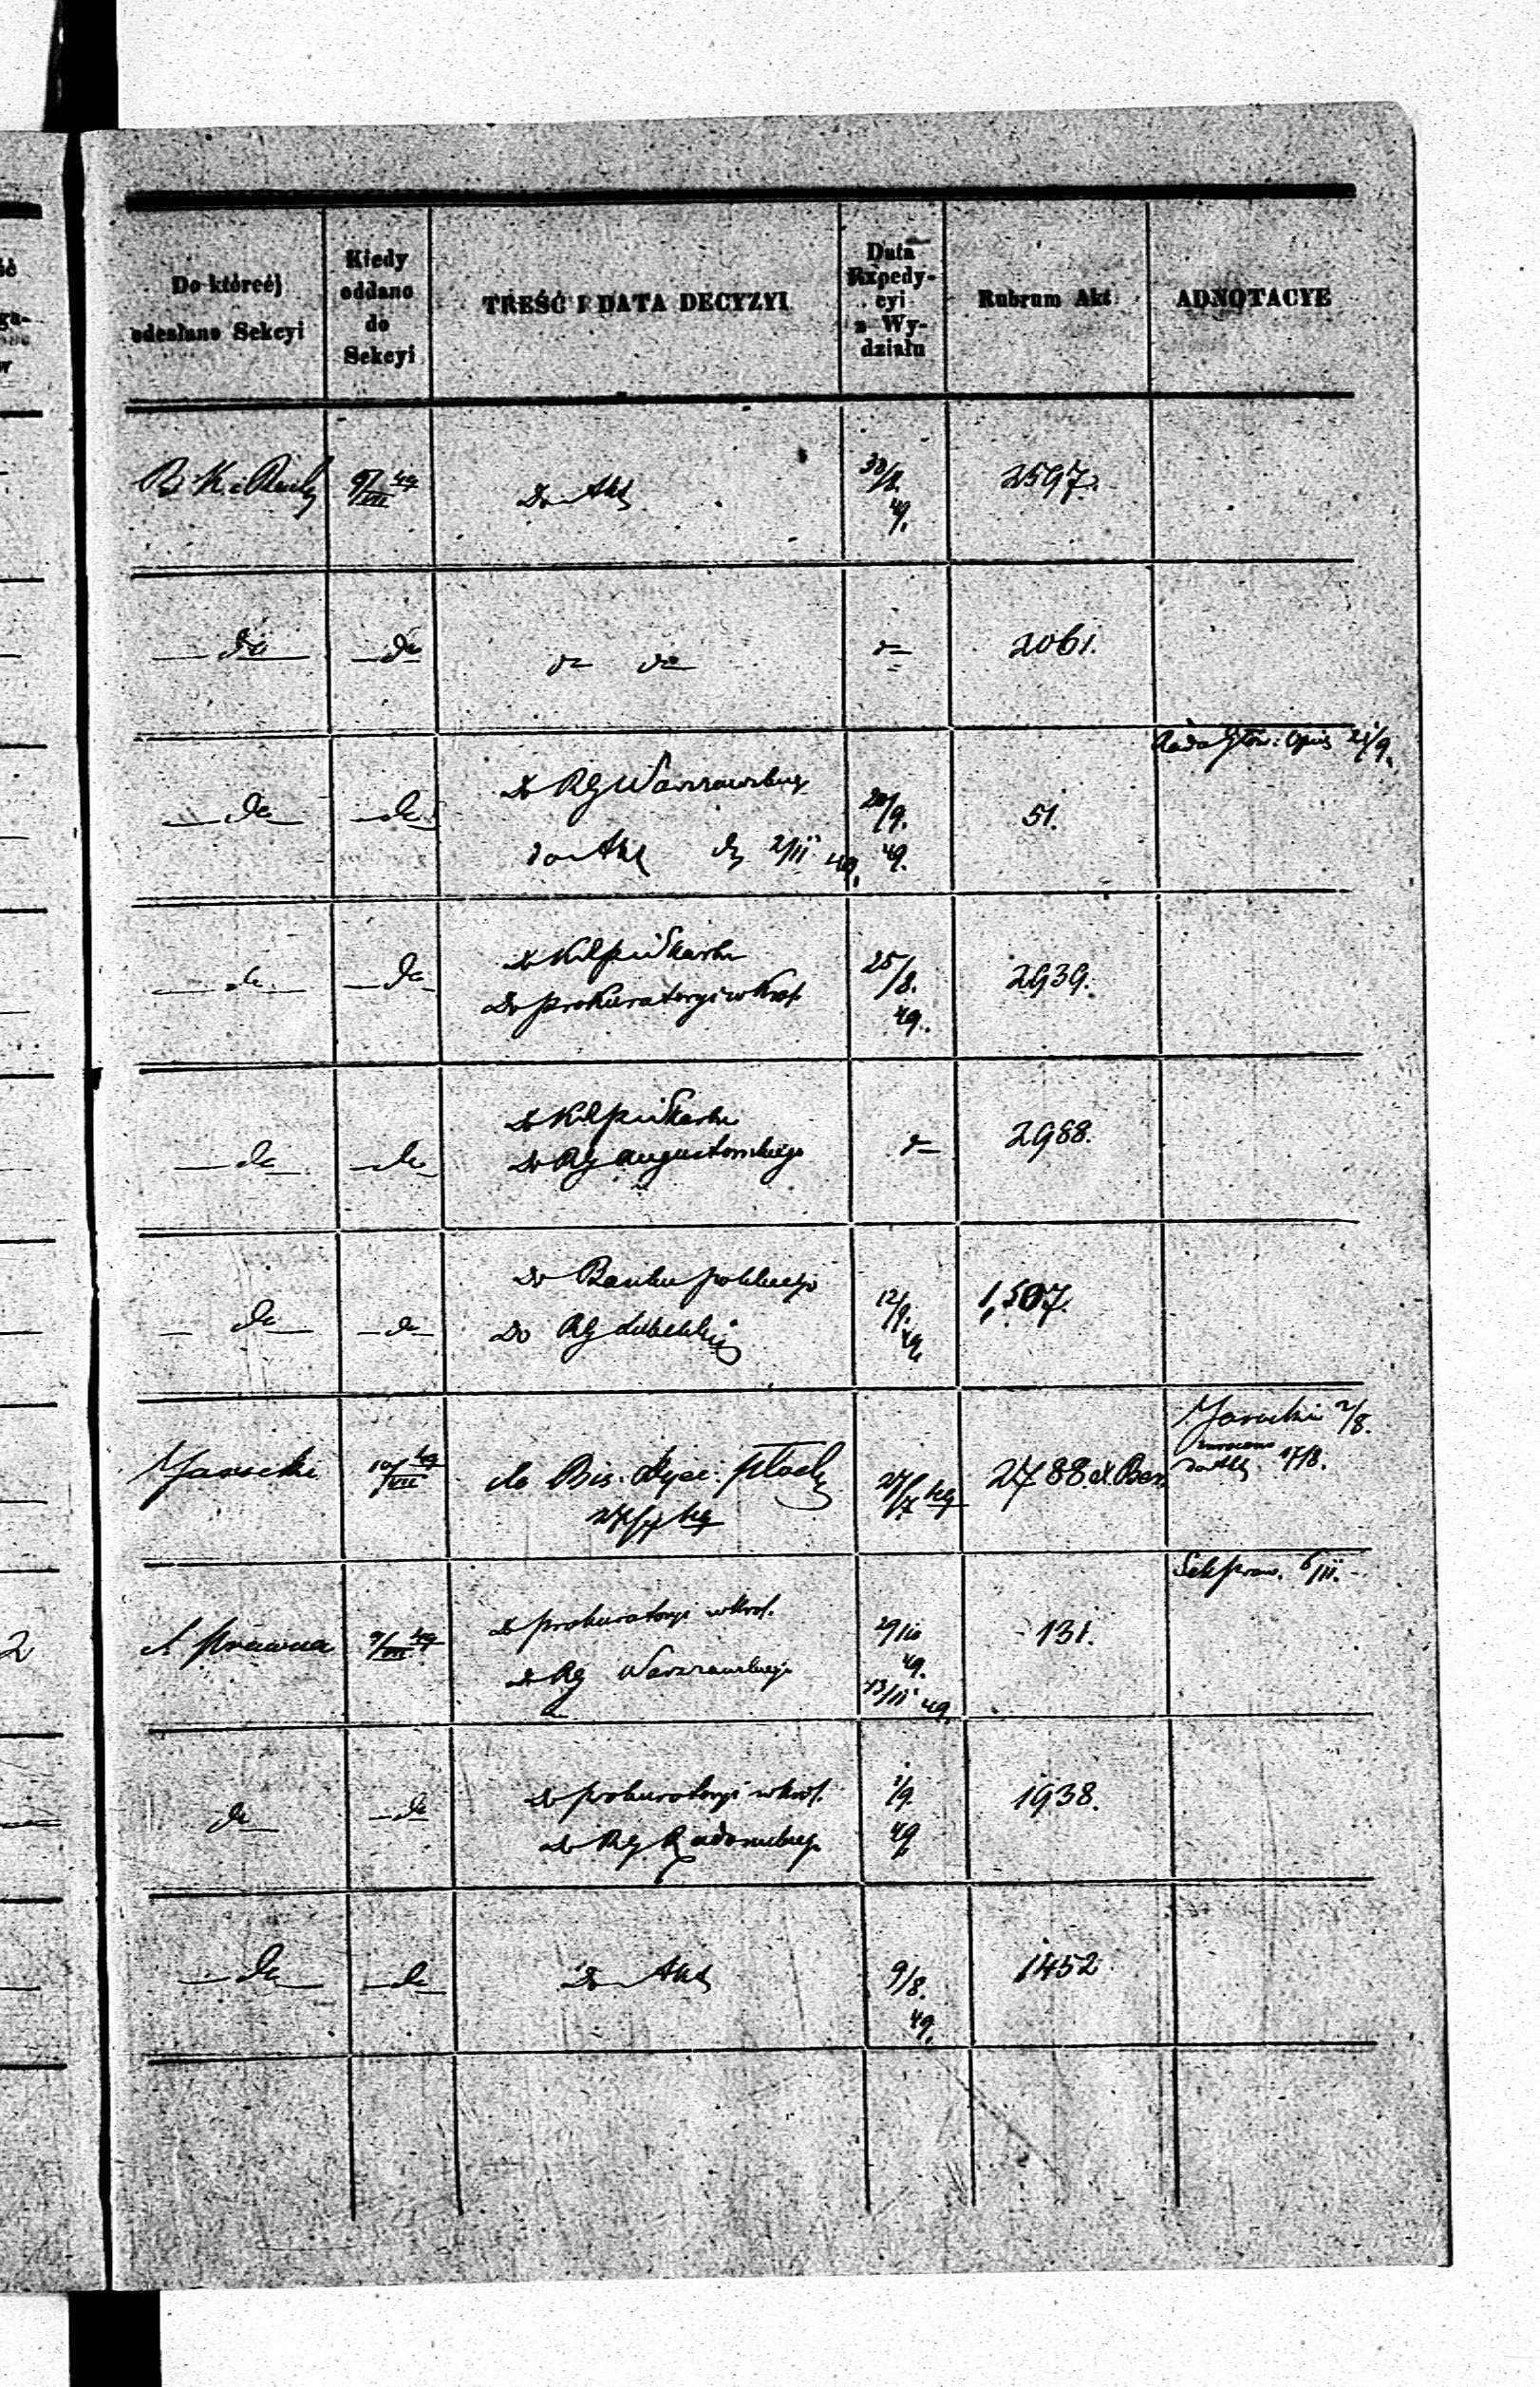 Do któreéj
odesłano Sekcyi
Kiedy
oddano
do
Sekcyi
TREŚĆ I DATA DECYZYI
Data
Expedy-
cyi
z Wy-
działu
Rubrum Akt
ADNOTACYE
9/VII 49
Do Akt
30/8.
49.
2597.
do
do
do do
do
2061.
21/9.
do
do
Do RG Warszawskiego
20/9.
49.
51.
do Akt d. 2/11 49.
do
do
Do Prokuratoryi w Król.
25/8.
49.
2939.
do
do
Do RG Augustowskiego
do
2988.
do
do
Do Banku polskiego
Do RG Lubelski
12/9.
49.
1,507.
Jarocki
10/VII 49
do Bis. Dyec. Płock
27/7 49
27/7 49
2788.
Jarocki 2/8.
do Akt 17/8.
S. Prawna
9/VII 49
Do prokuratoryi w Król.
Do RG Warszawskiego
29/10
49.
13/11 49.
131.
Sek praw. 6/11.
do
do
Do prokuratoryi w Król.
Do RG. Radomskiego
1/9
49
1938.
do
do
Do Akt
9/8.
49.
1452
2